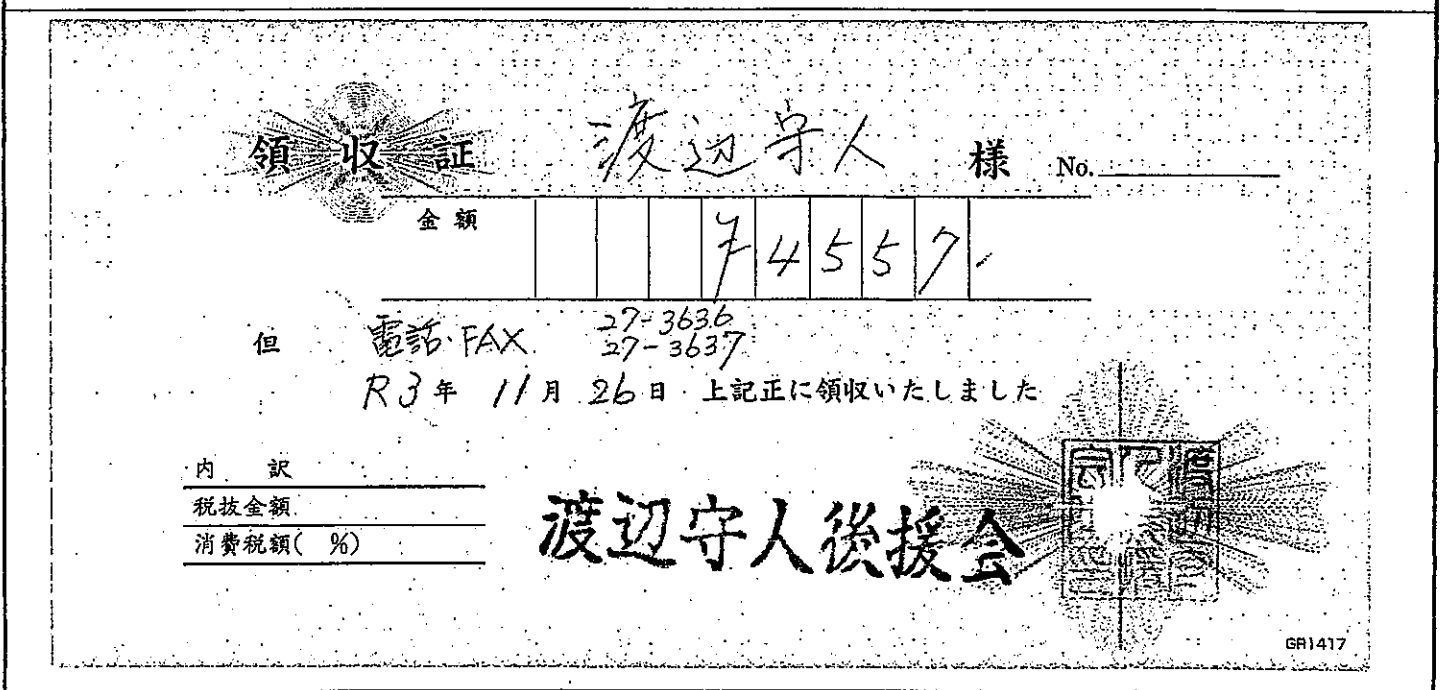 領収証 渡辺守人 様 No.
金額 ¥4557-
但 電話・FAX 27-3636
27-3637
R3年 11月 26日 上記正に領収いたしました
内訳
税抜金額
消費税額( %)
渡辺守人後援会
GR1417